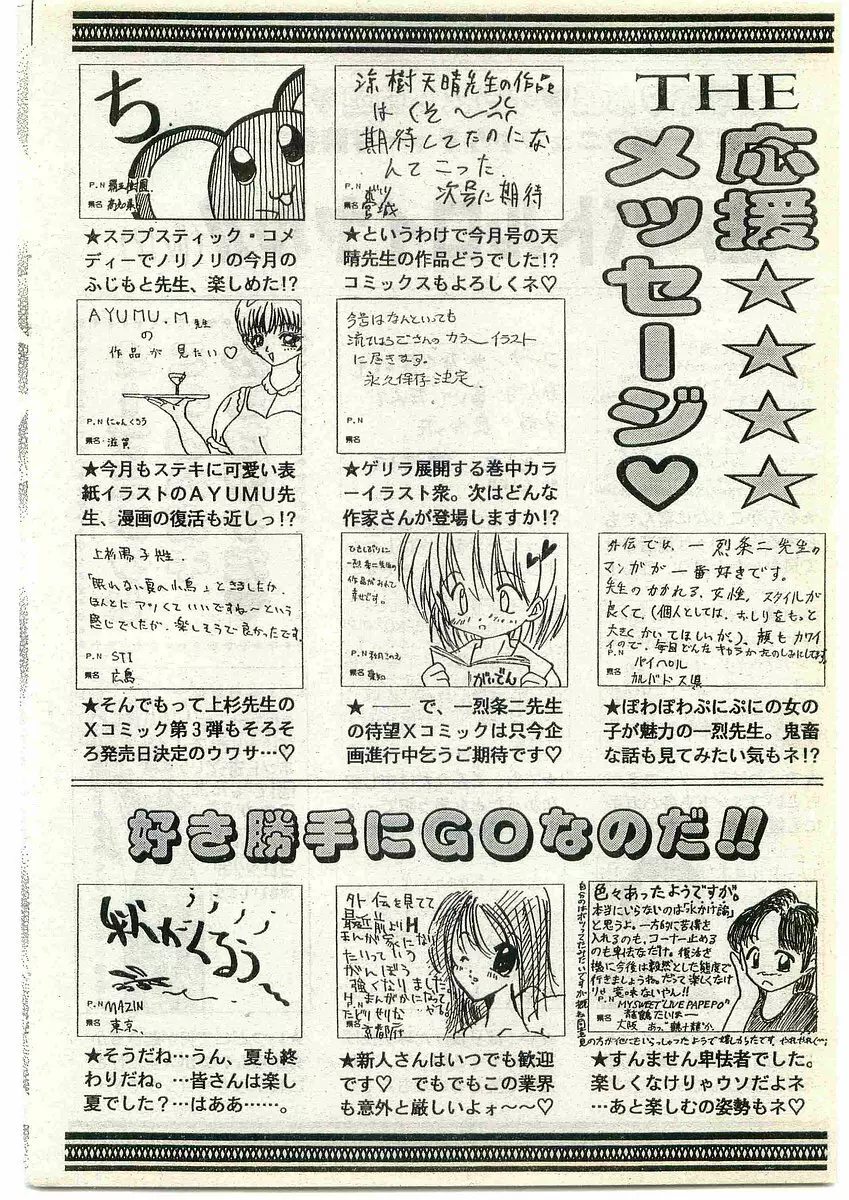 THE
応援★★★★
メッセージ♡
涼樹天晴先生の作品
はくそ〜
期待してたのにな
んてこった
次号に期待
P.N
県名 宮城
★というわけで今月号の天
晴先生の作品どうでした!?
コミックスもよろしくネ♡
ち
P.N
県名 高知県
★スラプスティック・コメ
ディーでノリノリの今月の
ふじもと先生、楽しめた!?
今号はなんといっても
流ひょうごさんのカラーイラスト
に尽きます。
永久保存決定
P.N
県名
★ゲリラ展開する巻中カラ
ーイラスト衆。次はどんな
作家さんが登場しますか!?
AYUMU.M先生
の
作品が見たい♡
P.N にゃんくろう
県名 滋賀
★今月もステキに可愛い表
紙イラストのAYUMU先
生、漫画の復活も近しっ!?
外伝では、一烈条二先生の
マンガが一番好きです。
先生のかかれる、女性、スタイルが
良くて、(個人としては、おしりをもっと
大きくかいてほしいが)、顔もカワイ
イので、毎回どんなキャラかたのしみにしてます
P.N バイパル
県名 カルバドス県
★ぽわぽわぷにぷにの女の
子が魅力の一烈先生。鬼畜
な話も見てみたい気もネ!?
ひさしぶりに
一烈条二先生の
作品がみれて
幸せです。
がいでん
P.N
県名 愛知
★――で、一烈条二先生
の待望Xコミックは只今企
画進行中乞うご期待です♡
上杉陽子先生.
「眠れない夏の小鳥」ときましたか.
ほんとにアツくていいですね〜という
感じでしたが、楽しそうで良かったです
P.N STI
県名 広島
★そんでもって上杉先生の
Xコミック第3弾もそろそ
ろ発売日決定のウワサ…♡
好き勝手にGOなのだ!!
色々あったようですが。
本当にいらないのは「水かけ論」
と思うよ。一方的に苦情を
入れるのも、コーナー止める
のも卑怯なだけ。復活を
機に今後は毅然とした態度で
行きましょうね。だって楽しくなけ
りゃ意味ないやん!!
P.N MY SWEET "LIVE PAPEPO"の
鶴たいまー
県名 大阪
★すんません卑怯者でした。
楽しくなけりゃウソだよネ
…あと楽しむの姿勢もネ♡
外伝を見てて
最近前よりH
まんが家にな
たいっていう
がんぼうが
強くなりました
H まんがかになって
P.N
県名 京都府
★新人さんはいつでも歓迎
です♡ でもでもこの業界
も意外と厳しいよォ〜〜♡
秋がくるぅ〜
P.N MAZIN
県名 東京、
★そうだね…うん、夏も終
わりだね。…皆さんは楽し
夏でした?…はああ……。